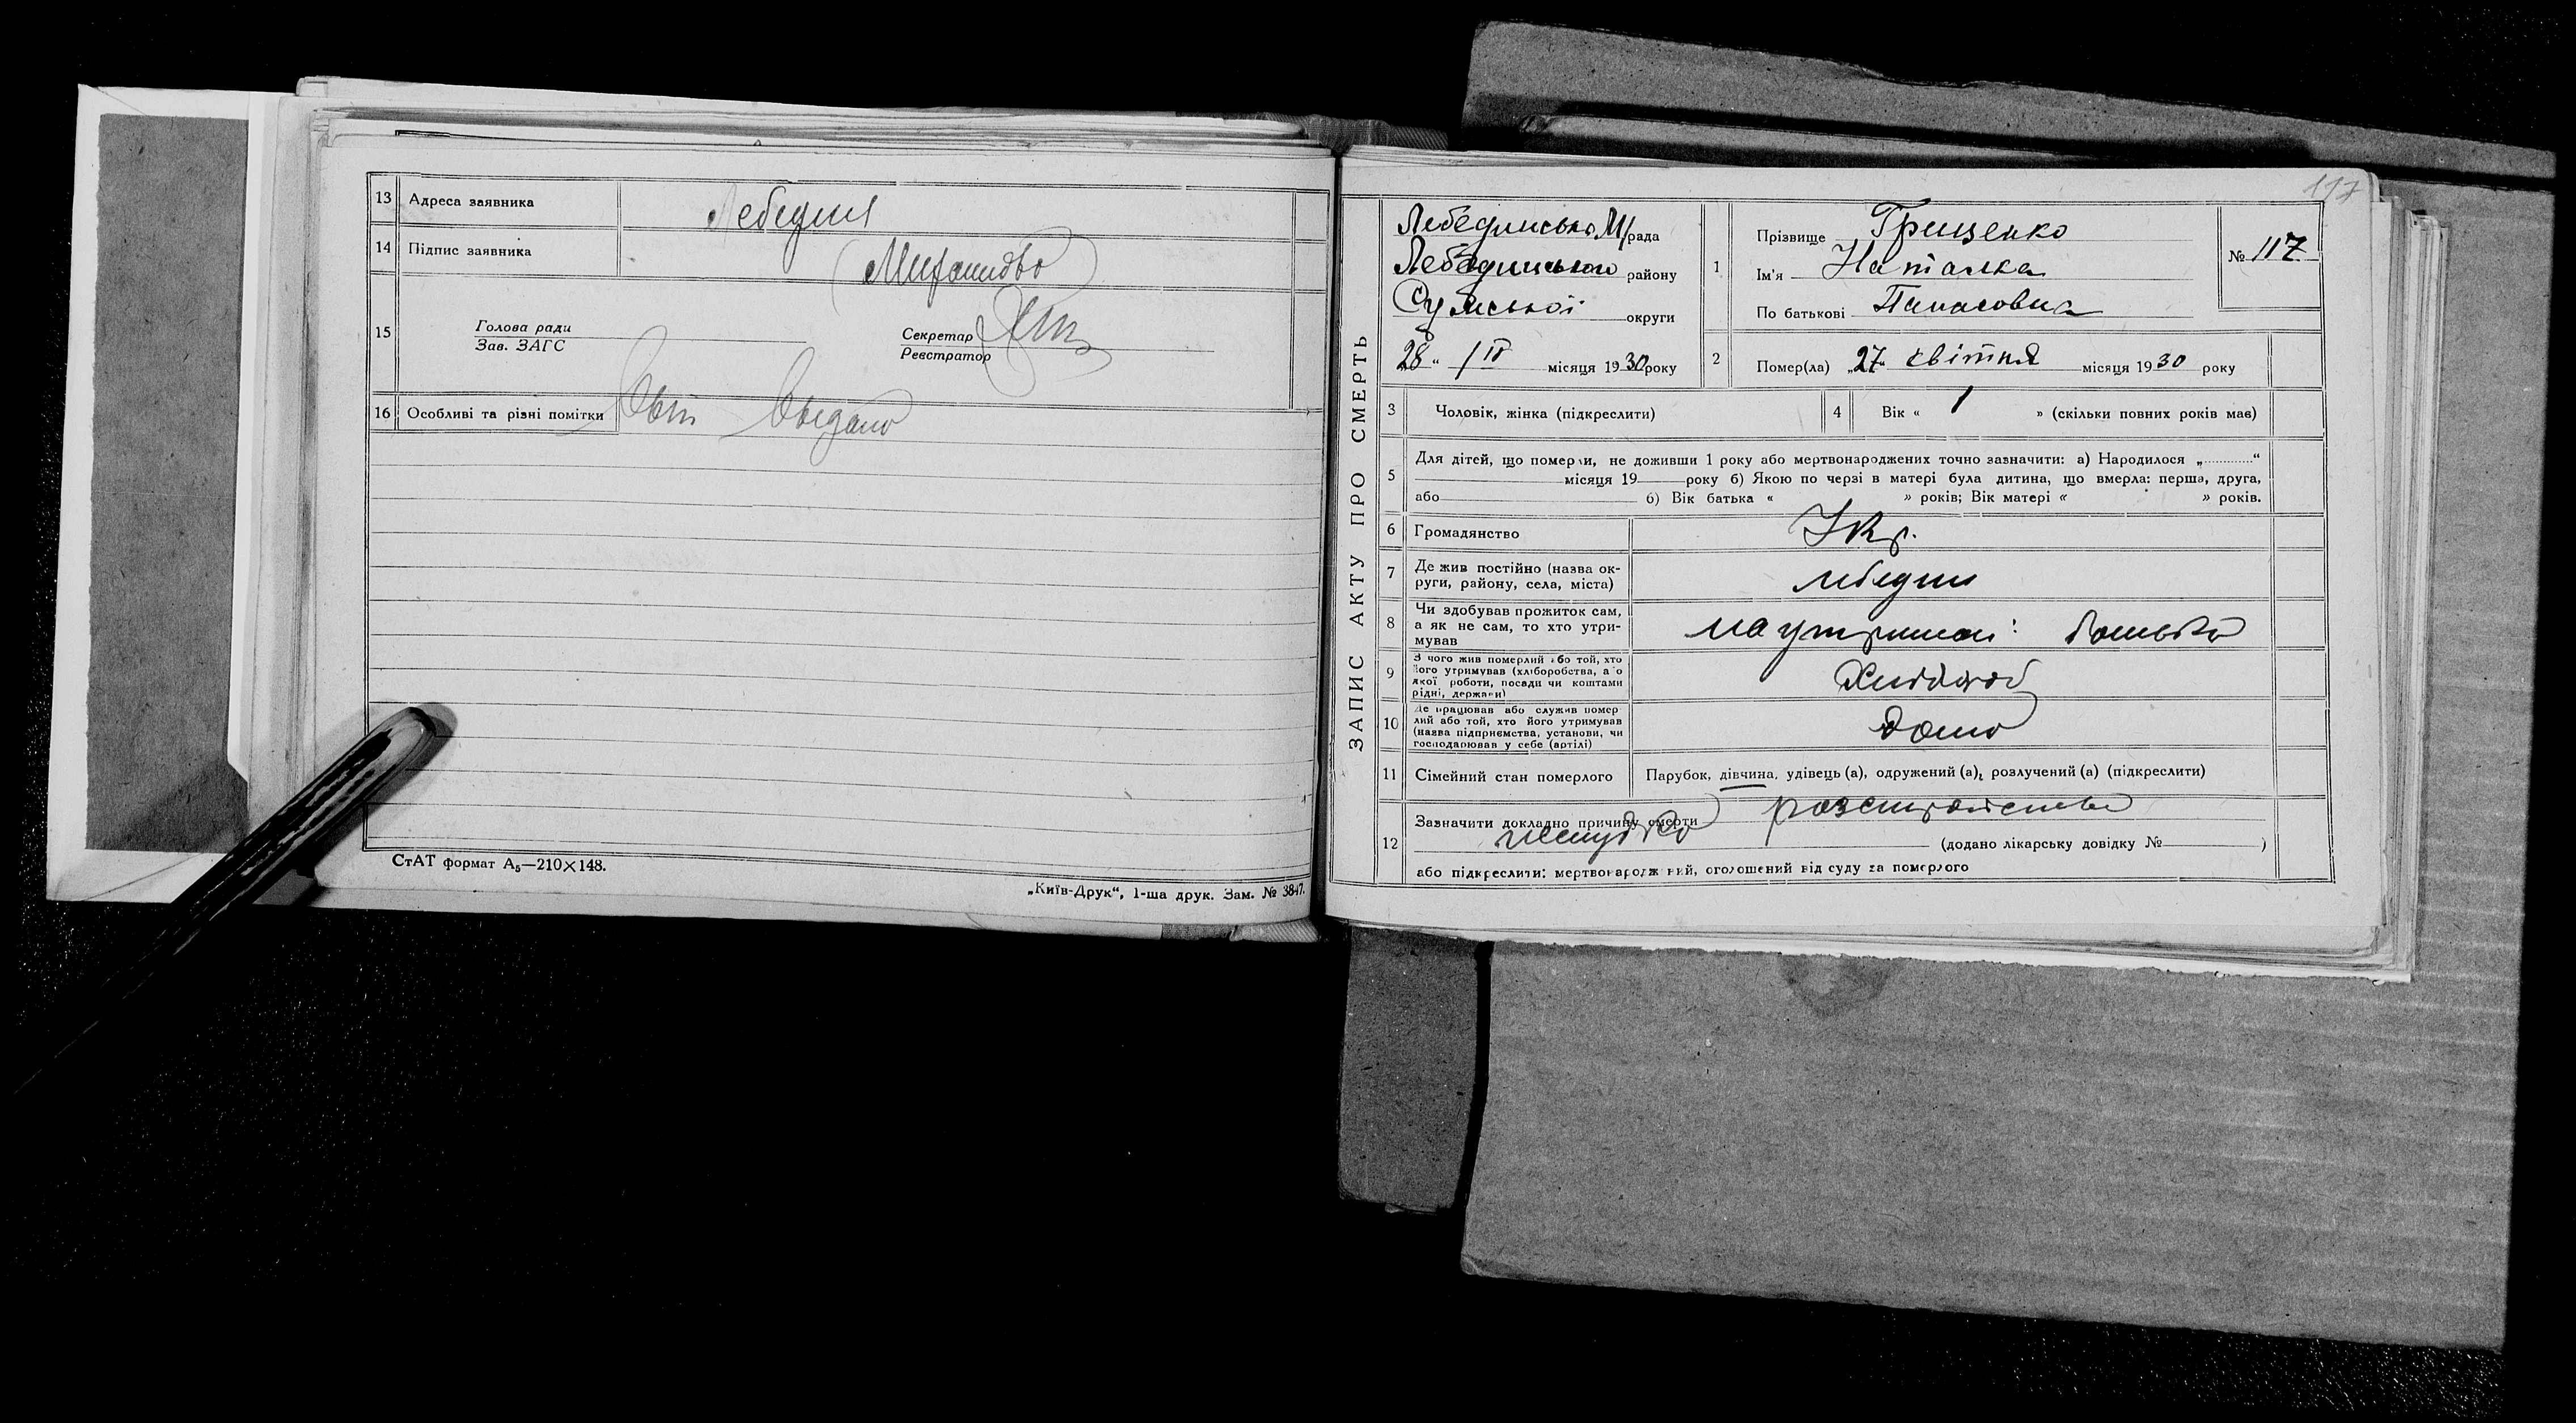 13 Адреса заявника Лебедин
14 Підпис заявника
15 Голова ради
Зав. ЗАГС
Секретар
Реєстратор
16 Особливі та різні помітки Выдано
СтАТ формат А₅—210×148.
„Київ-Друк“, 1-ша друк. Зам. № 3847.
117
ЗАПИС АКТУ ПРО СМЕРТЬ
Лебединська М/рада
Лебединського району
Сумської округи
„28“ /IV місяця 1930 року
1 Прізвище Грищенко
Ім'я Наталка
По батькові Панасовна
№ 117
2 Помер(ла) „27“ квітня місяця 1930 року
3 Чоловік, жінка (підкреслити)
4 Вік « 1 » (скільки повних років мав)
5 Для дітей, що померли, не доживши 1 року або мертвонароджених точно зазначити: а) Народилося „............“
місяця 19 року б) Якою по черзі в матері була дитина, що вмерла: перша, друга,
або б) Вік батька « » років; Вік матері « » років.
6 Громадянство Укр.
7 Де жив постійно (назва ок-
руги, району, села, міста) Лебедин
8 Чи здобував прожиток сам,
а як не сам, то хто утри-
мував на утриман: батька
9 З чого жив померлий або той, хто
його утримував (хліборобства, або
якої роботи, посади чи коштами
рідні, держави)
10 Де працював або служив помер
лий або той, хто його утримував
(назва підприємства, установи, чи
господарював у себе (артілі)
дома
11 Сімейний стан померлого Парубок, дівчина, удівець (а), одружений (а), розлучений (а) (підкреслити)
12 Зазначити докладно причину смерти розстройство
желудка (додано лікарську довідку № )
або підкреслити: мертвонароджений, оголошений від суду за померлого